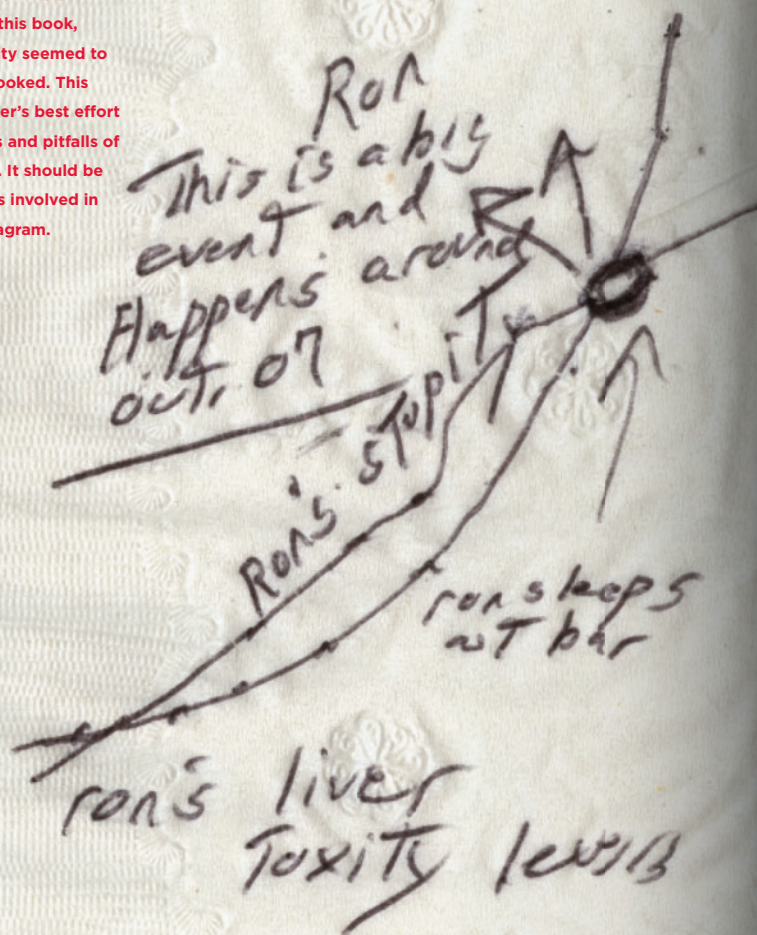 this book,
ty seemed to
ooked. This
er's best effort
s and pitfalls of
. It should be
s involved in
agram.
Ron
This is a big
event and
Happens around
out, 07
Ron's stupiTy
ron sleeps
aT bar
ron's liver
ToxiTy levels